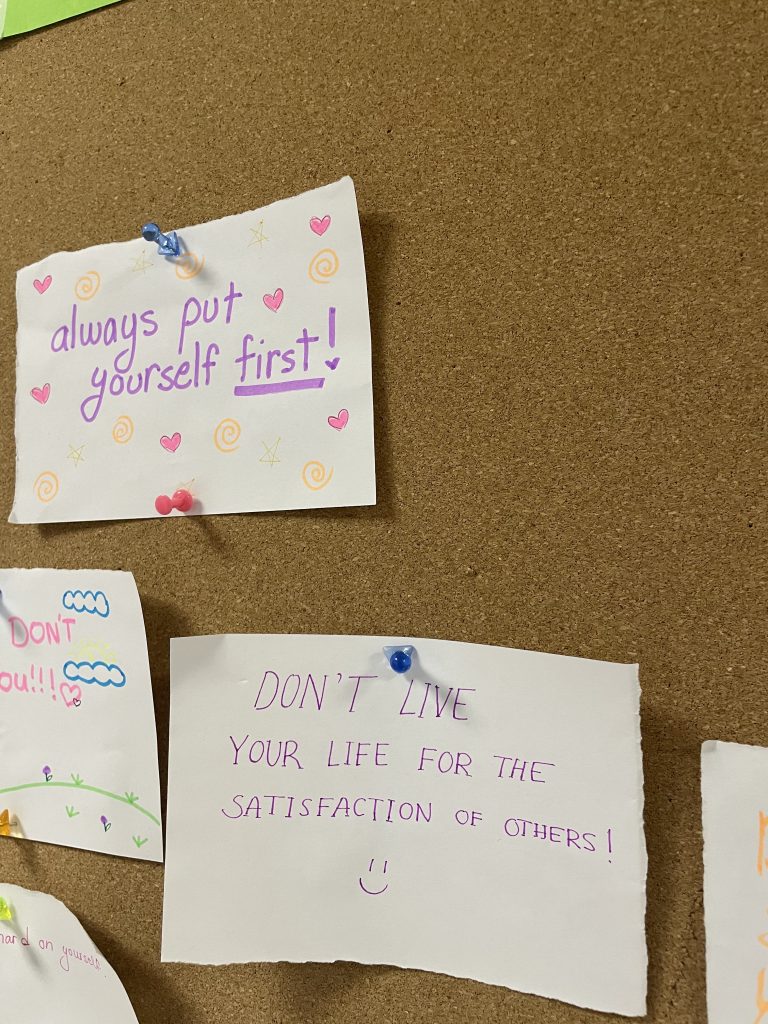 always put
yourself first!
DON'T
ou!!!
DON'T LIVE
YOUR LIFE FOR THE
SATISFACTION OF OTHERS!
hard on yourself.